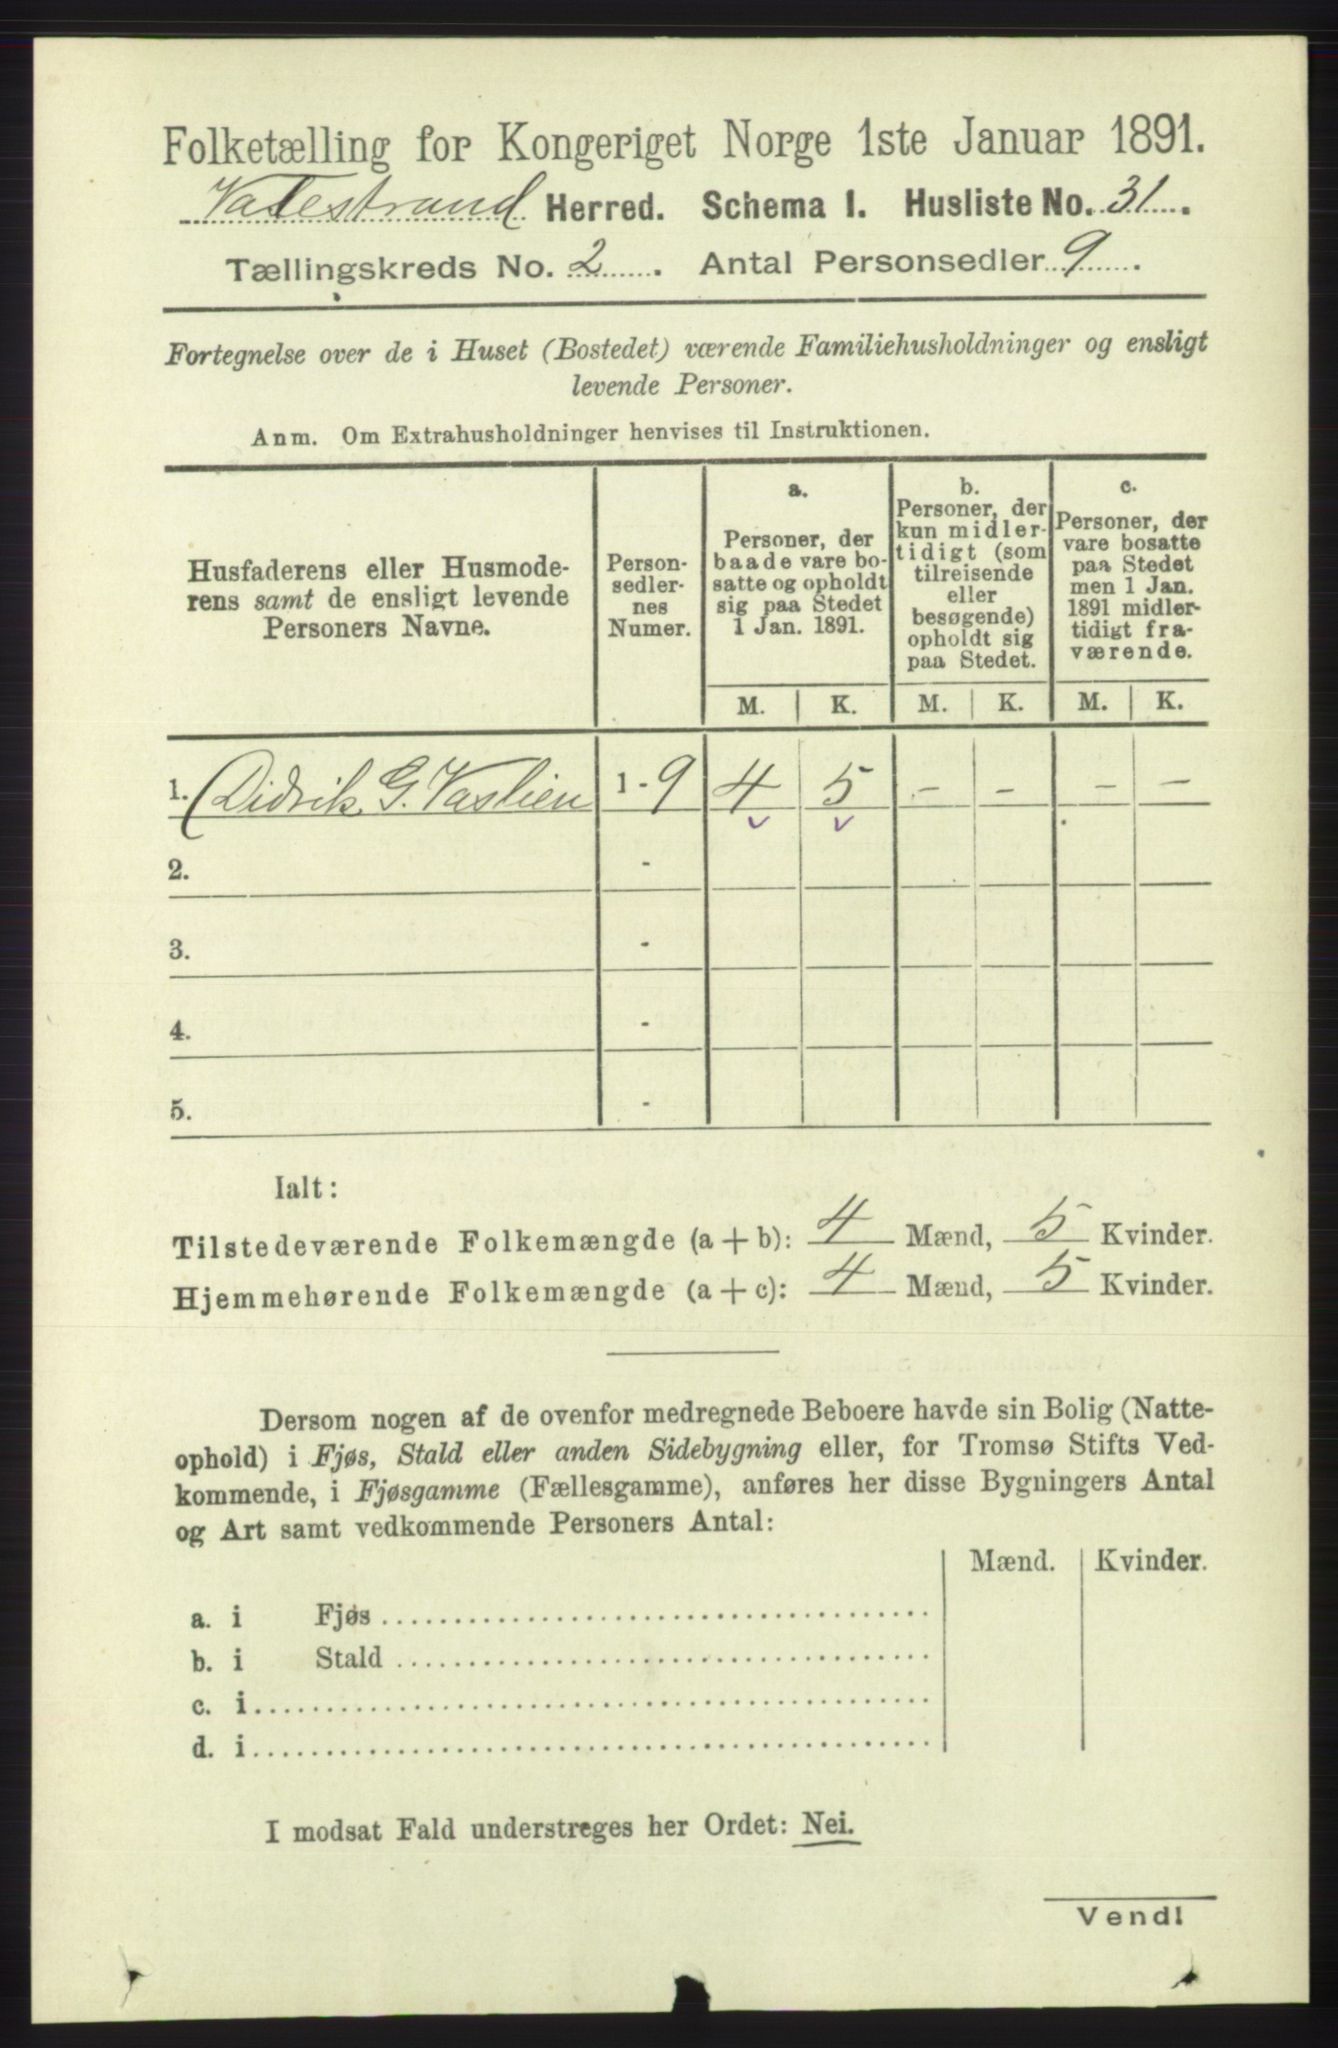 Folketælling for Kongeriget Norge 1ste Januar 1891.
Vatestrand Herred. Schema 1. Husliste No. 31.
Tællingskreds No. 2. Antal Personsedler 9.
Fortegnelse over de i Huset (Bostedet) værende Familiehusholdninger og ensligt
levende Personer.
Anm. Om Extrahusholdninger henvises til Instruktionen.
Husfaderens eller Husmode-
rens samt de ensligt levende
Personers Navne.
Person-
sedler-
nes
Numer.
a.
Personer, der
baade vare bo-
satte og opholdt
sig paa Stedet
1 Jan. 1891.
b.
Personer, der
kun midler-
tidigt (som
tilreisende
eller
besøgende)
opholdt sig
paa Stedet.
c.
Personer, der
vare bosatte
paa Stedet
men 1 Jan.
1891 midler-
tidigt fra-
værende.
M. K. M. K. M. K.
1. Didrik G. Vaslien 1 - 9 4 5 - - - -
2. -
3. -
4. -
5. -
Ialt:
Tilstedeværende Folkemængde (a + b): 4 Mænd, 5 Kvinder.
Hjemmehørende Folkemængde (a + c): 4 Mænd, 5 Kvinder.
Dersom nogen af de ovenfor medregnede Beboere havde sin Bolig (Natte-
ophold) i Fjøs, Stald eller anden Sidebygning eller, for Tromsø Stifts Ved-
kommende, i Fjøsgamme (Fællesgamme), anføres her disse Bygningers Antal
og Art samt vedkommende Personers Antal:
Mænd. Kvinder.
a. i Fjøs
b. i Stald
c. i
d. i
I modsat Fald understreges her Ordet: Nei.
Vend!